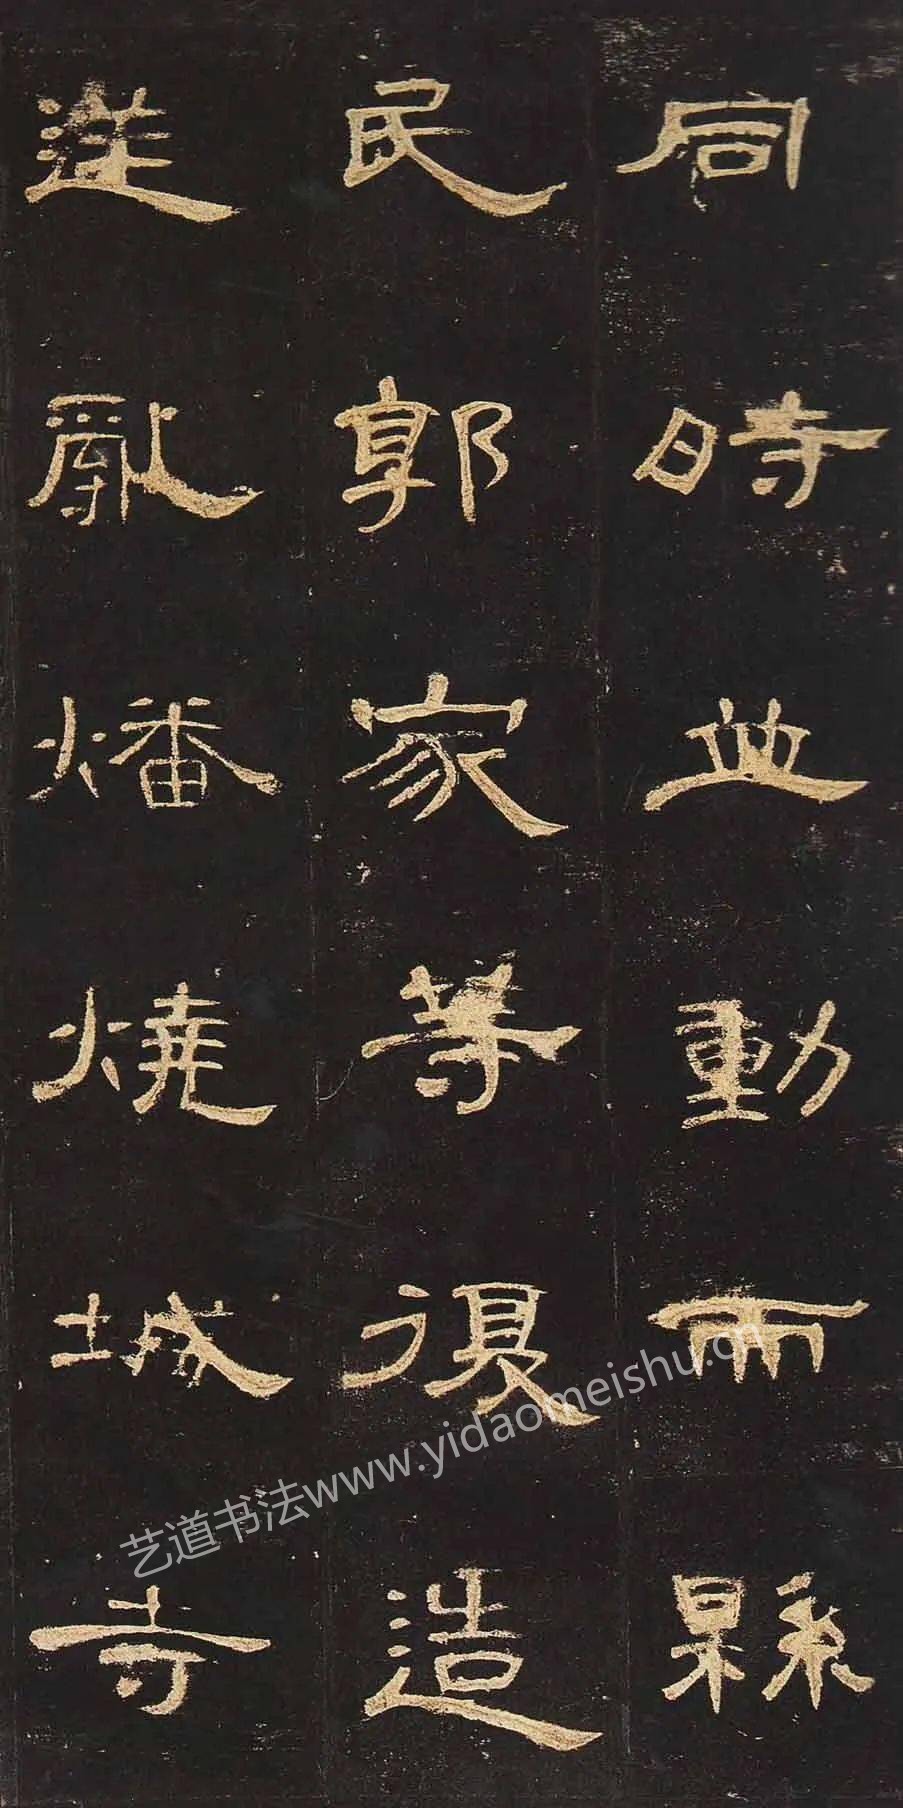 同時並動而縣
民郭家等復造
逆亂燔燒城寺
艺道书法www.yidaomeishu.cn